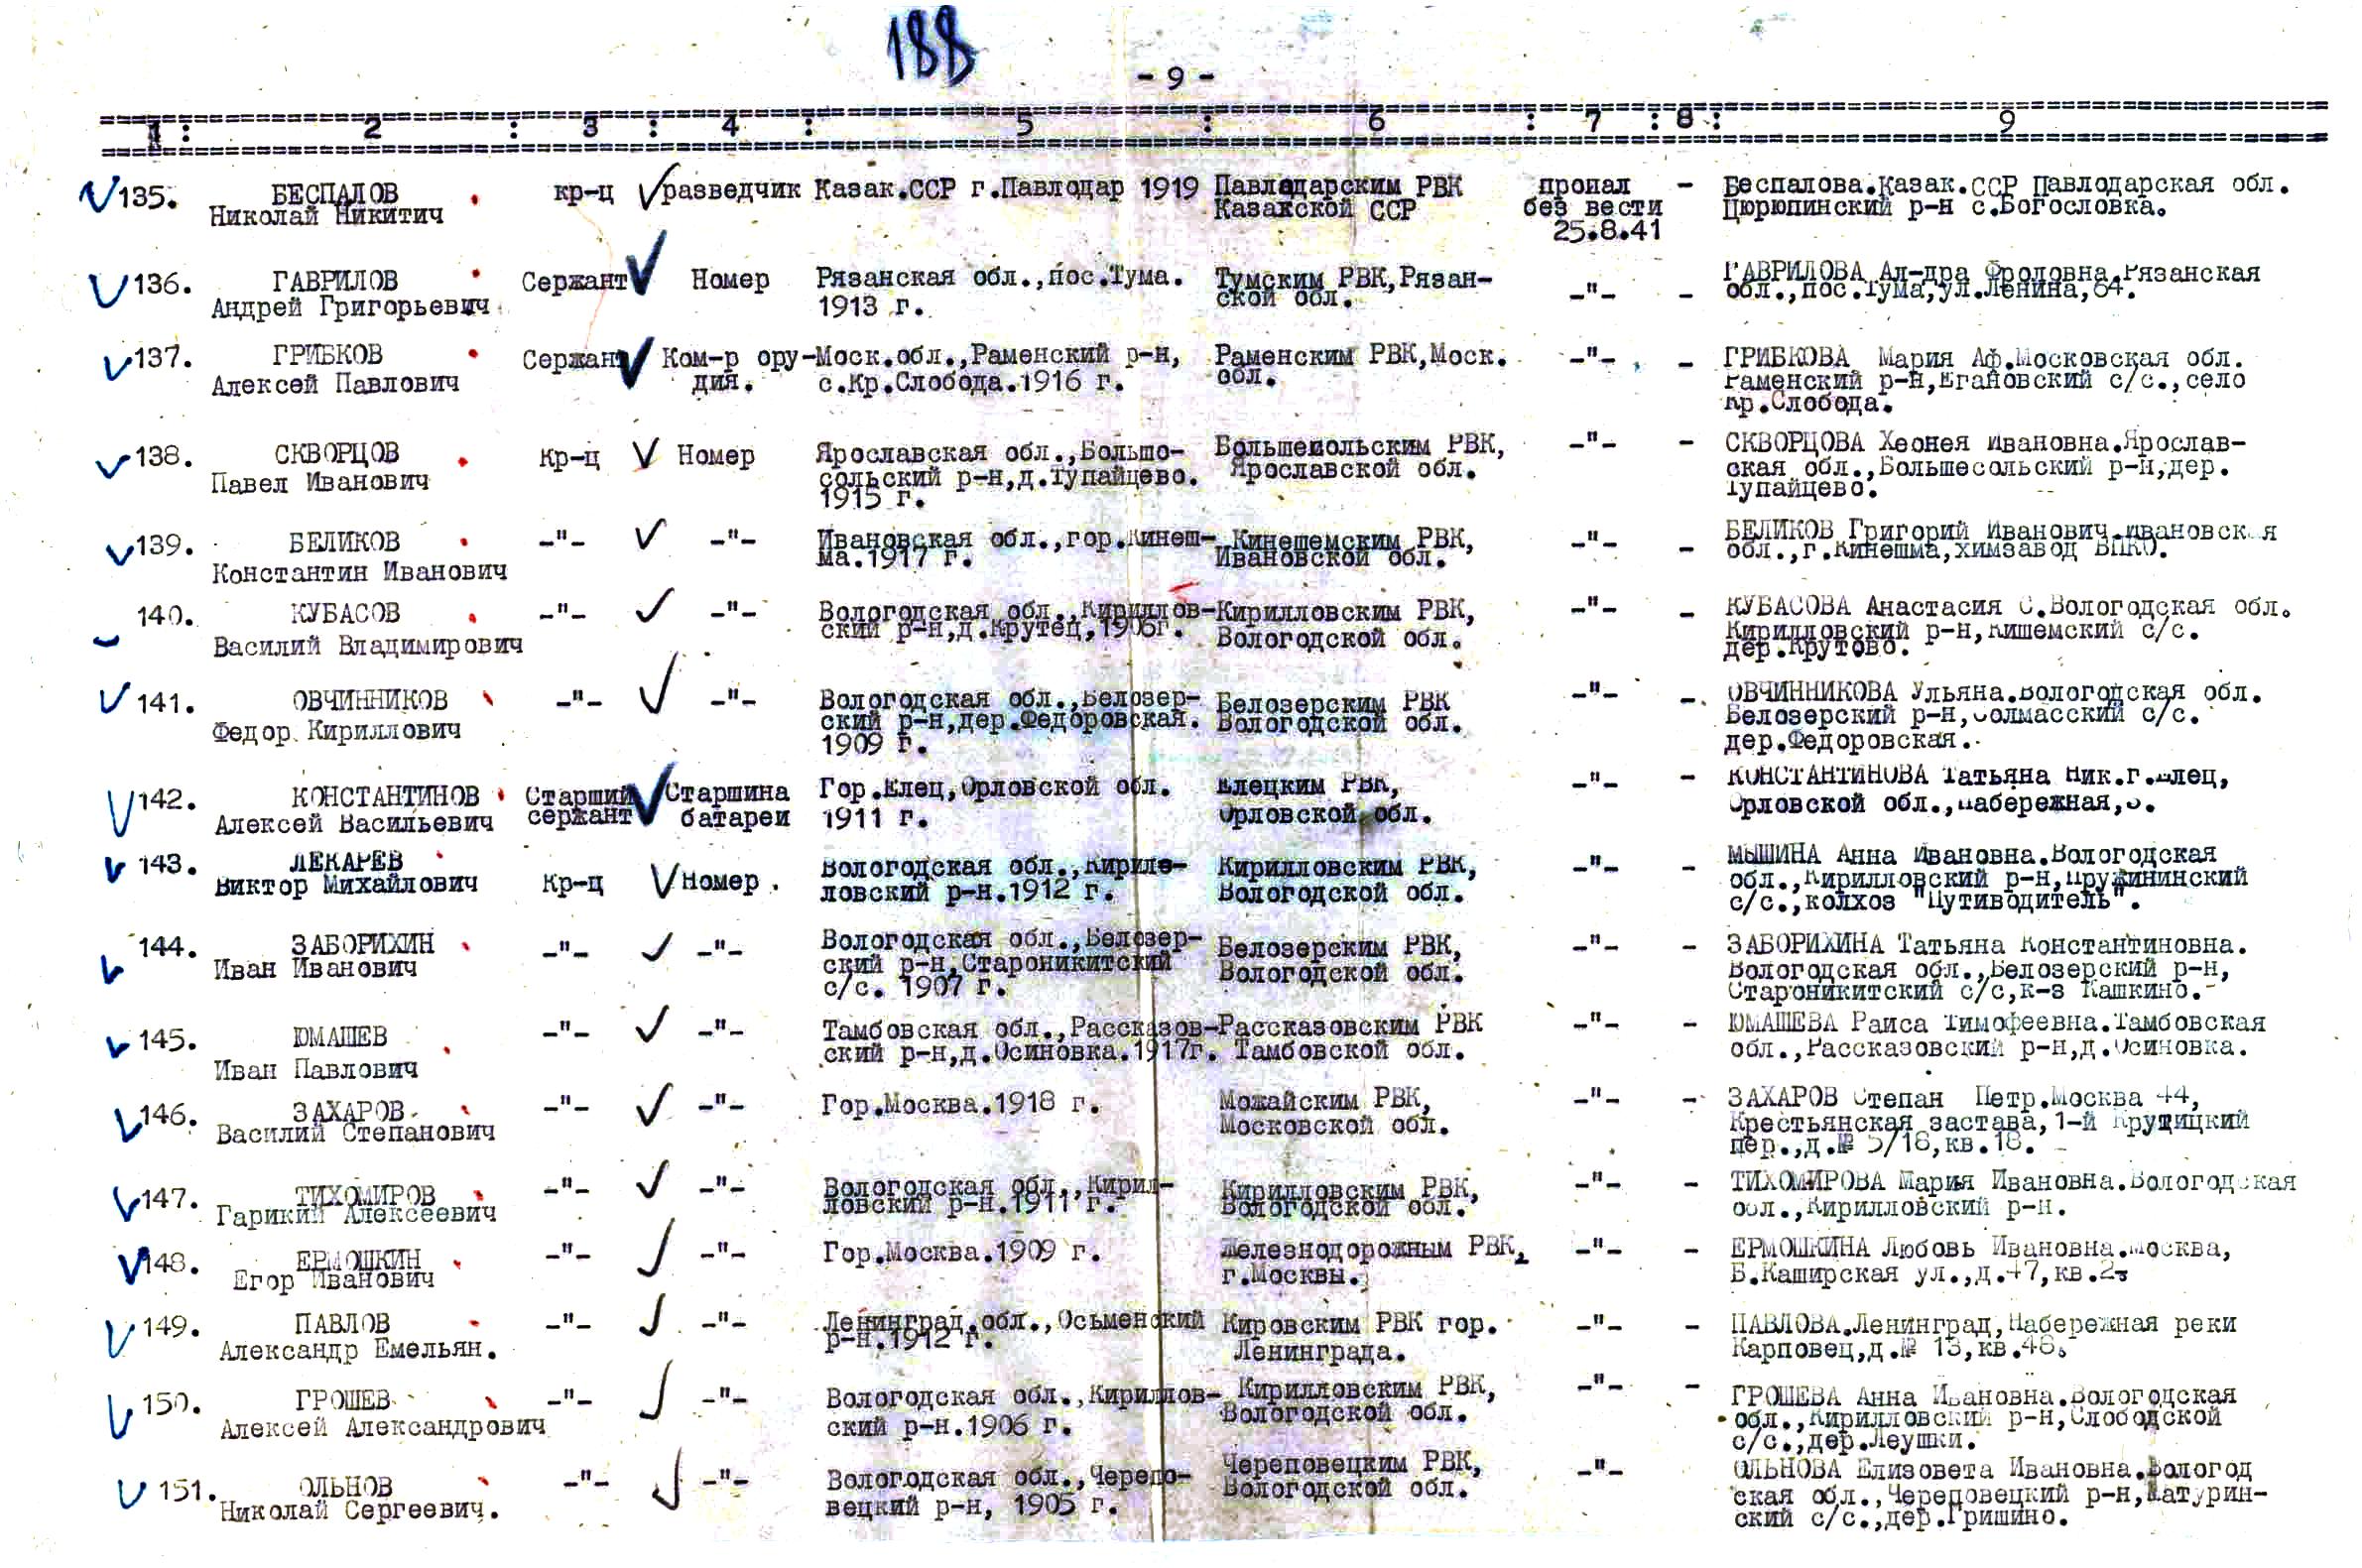 188
- 9 -
1 : 2 : 3 : 4 : 5 : 6 : 7 : 8 : 9
135. БЕСПАЛОВ кр-ц разведчик Казак.ССР г.Павлодар 1919 Павлодарским РВК пропал - Беспалова.Казак.ССР Павлодарская обл.
Николай Никитич Казакской ССР без вести Цюрюпинский р-н с.Богословка.
25.8.41
136. ГАВРИЛОВ Сержант Номер Рязанская обл.,пос.Тума. Тумским РВК,Рязан- -"- - ГАВРИЛОВА Ал-дра Фроловна.Рязанская
Андрей Григорьевич 1913 г. ской обл. обл.,пос.Тума,ул.Ленина,64.
137. ГРИБКОВ Сержант Ком-р ору- Моск.обл.,Раменский р-н, Раменским РВК,Моск. -"- - ГРИБКОВА Мария Аф.Московская обл.
Алексей Павлович дия. с.Кр.Слобода.1916 г. обл. Раменский р-н,Егановский с/с.,село
Кр.Слобода.
138. СКВОРЦОВ Кр-ц Номер Ярославская обл.,Большо- Большевольским РВК, -"- - СКВОРЦОВА Хеонея Ивановна.Ярослав-
Павел Иванович сольский р-н,д.Тупайцево. Ярославской обл. ская обл.,Большесольский р-н,дер.
1915 г. Тупайцево.
139. БЕЛИКОВ -"- -"- Ивановская обл.,гор.Кинеш- Кинешемским РВК, -"- - БЕЛИКОВ Григорий Иванович.Ивановская
Константин Иванович ма.1917 г. Ивановской обл. обл.,г.Кинешма,химзавод
140. КУБАСОВ -"- -"- Вологодская обл.,Кириллов- Кирилловским РВК, -"- - КУБАСОВА Анастасия С.Вологодская обл.
Василий Владимирович ский р-н,д.Крутец,1906г. Вологодской обл. Кирилловский р-н,Кишемский с/с.
дер.Крутово.
141. ОВЧИННИКОВ -"- -"- Вологодская обл.,Белозер- Белозерским РВК -"- - ОВЧИННИКОВА Ульяна.Вологодская обл.
Федор Кириллович ский р-н,дер.Федоровская. Вологодской обл. Белозерский р-н,Солмасский с/с.
1909 г. дер.Федоровская.
142. КОНСТАНТИНОВ Старший Старшина Гор.Елец,Орловской обл. Елецким РВК, -"- - КОНСТАНТИНОВА Татьяна Ник.г.Елец,
Алексей Васильевич сержант батареи 1911 г. Орловской обл. Орловской обл.,Набережная,
143. ЛЕКАРЕВ Вологодская обл.,Кирилв- Кирилловским РВК, -"- - МЫШИНА Анна Ивановна.Вологодская
Виктор Михайлович Кр-ц Номер. ловский р-н.1912 г. Вологодской обл. обл.,Кирилловский р-н,Пружининский
с/с.,колхоз "Путиводитель".
144. ЗАБОРИХИН -"- -"- Вологодская обл.,Белозер- Белозерским РВК, -"- - ЗАБОРИХИНА Татьяна Константиновна.
Иван Иванович ский р-н,Староникитский Вологодской обл. Вологодская обл.,Белозерский р-н,
с/с. 1907 г. Староникитский с/с,к-з Кашкино.
145. ЮМАШЕВ -"- -"- Тамбовская обл.,Рассказов- Рассказовским РВК -"- - ЮМАШЕВА Раиса Тимофеевна.Тамбовская
Иван Павлович ский р-н,д.Осиновка.1917г. Тамбовской обл. обл.,Рассказовский р-н,д.Осиновка.
146. ЗАХАРОВ -"- -"- Гор.Москва.1918 г. Можайским РВК, -"- - ЗАХАРОВ Степан Петр.Москва 44,
Василий Степанович Московской обл. Крестьянская застава,1-й Крутицкий
пер.,д.№ 5/16,кв.18.
147. ТИХОМИРОВ -"- -"- Вологодская обл.,Кирил- Кирилловским РВК, -"- - ТИХОМИРОВА Мария Ивановна.Вологодская
Гарикий Алексеевич ловский р-н.1911 г. Вологодской обл. обл.,Кирилловский р-н.
148. ЕРМОШКИН -"- -"- Гор.Москва.1909 г. Железнодорожным РВК, -"- - ЕРМОШКИНА Любовь Ивановна.Москва,
Егор Иванович г.Москвы. Б.Каширская ул.,д.47,кв.
149. ПАВЛОВ -"- -"- Ленинград.обл.,Осьменский Кировским РВК гор. -"- - ПАВЛОВА.Ленинград,Набережная реки
Александр Емельян. р-н.1912 г. Ленинграда. Карповец,д.№ 13,кв.46.
150. ГРОШЕВ -"- -"- Вологодская обл.,Кириллов- Кирилловским РВК, -"- - ГРОШЕВА Анна Ивановна.Вологодская
Алексей Александрович ский р-н.1906 г. Вологодской обл. обл.,Кирилловский р-н,Слободской
с/с.,дер.Леушки.
151. ОЛЬНОВ -"- -"- Вологодская обл.,Черепо- Череповецким РВК, -"- ОЛЬНОВА Елизовета Ивановна.Вологод
Николай Сергеевич. вецкий р-н, 1905 г. Вологодской обл. ская обл.,Череповецкий р-н,Матурин-
ский с/с.,дер.Гришино.